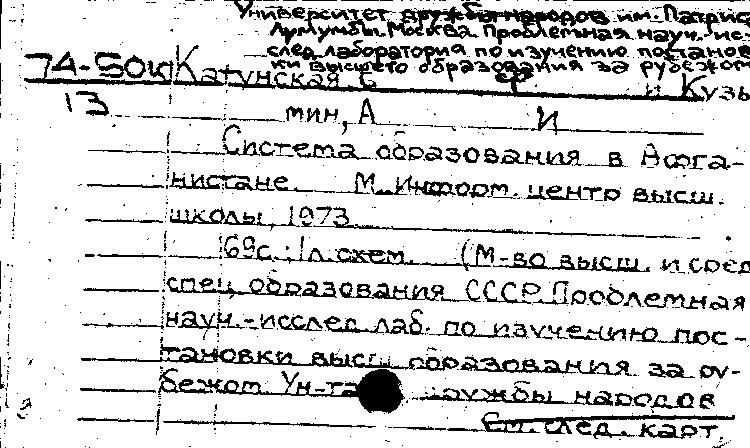 Университет дружбы народов им. Патриса
Лумумбы. Москва. Проблемная науч.-ис-
след. лаборатория по изучению постанов-
ки высшего образования за рубежом
74-50 Катунская, С Ф и Кузь-
13 мин, А И
Система образования в Афга-
нистане. М. Информ. центр высш.
школы, 1973
69с.; 1л. схем. (М-во высш. и сред
спец. образования СССР. Проблемная
науч.-исслед. лаб. по изучению пос-
тановки высш образования за ру-
бежом. Ун-т дружбы народов
См. след. карт